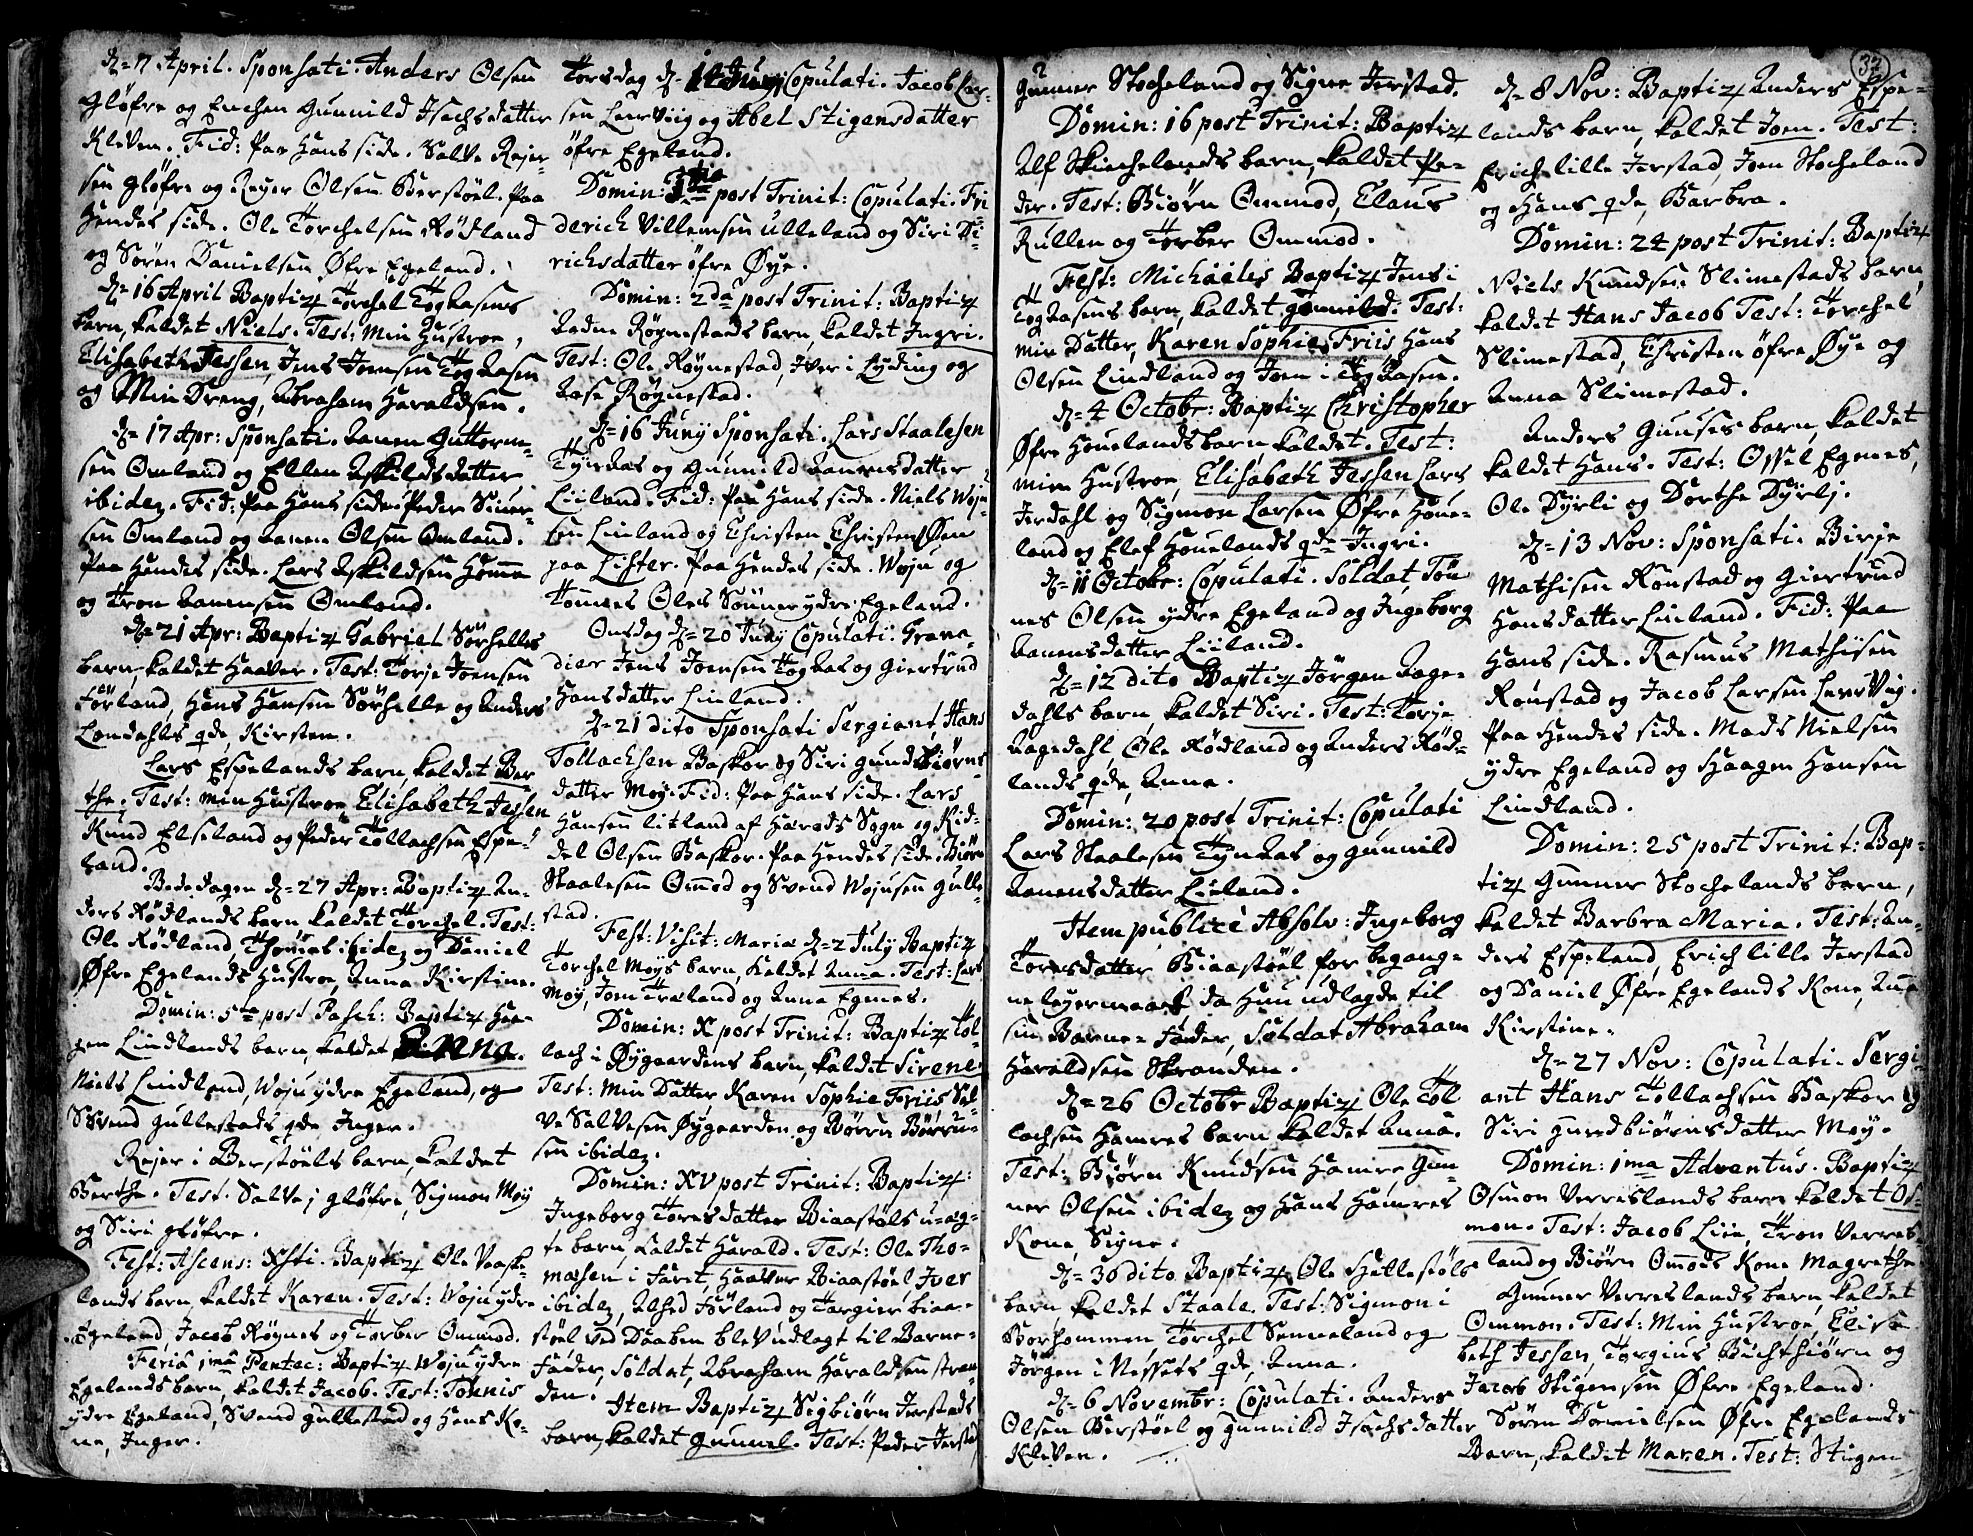 d= 7 April. Sponsati. Anders Olsen
Gløfre og Enchen Gunnild Isachsdatter
Kleven. Fid: Paa Hans side. Salve Rejer-
sen Gløfre og Rejer Olsen Berstøel. Paa
Hendes side. Ole Torchelsen Rødland
og Søren Danielsen Øfre Egeland.
d= 16 April Baptiz Torchel Togaasens
barn, kaldet Niels. Test: Min Hustroe,
Elisabeth Jessen, Jens Joensen Togaasen
og Min Dreng, Abraham Haraldsen.
d= 17 Apr: Sponsati. Aanen Guttorm-
sen Omland og Ellen Askildsdatter
ibidem. Fid: Paa Hans side. Peder Siver-
sen Omland og Aanen Olsen Omland.
Paa Hendes side. Lars Askildsen Homme
og Tron Aanensen Omland.
d= 21 Apr: Baptiz Gabriel Sørhelles
barn, kaldet Haaver. Test: Torje Joensen
Førland, Hans Hansen Sørhelle og Anders
Londahls qde, Kirsten.
Lars Espelands barn kaldet Ber-
the. Test: min Hustroe Elisabeth Jessen
Knud Elseland og Peder Tollachsen Espe-
land.
Bededagen d= 27 Apr: Baptiz An-
ders Rødlands barn kaldet Torchel. Test:
Ole Rødland, Thomas ibidem og Daniel
Øfre Egelands Hustroe, Anna Kirstine.
Domin: 5te post Pasch: Baptiz Haa-
gen Lindlands barn, kaldet Anna.
Niels Lindland, Woju ydre Egeland, og
Svend Gullestads qde Inger.
Rejer i Berstøels barn, kaldet
Berthe. Test. Salve i Gløfre, Sigmon Moy
og Siri Gløfre.
Fest: Ascens: Xsti. Baptiz Ole Vaasse-
lands barn, kaldet Karen. Test: Woju ydre
Egeland, Jacob Røynes og Torber Ommod.
Feria 1ma Pentec: Baptiz Woju ydre
Egelands barn, kaldet Jacob. Test: Tønnis
ydre Egeland, Svend Gullestad og Hans Ko-
ne, Inger.
Torsdag d= 14 Juny Copulati. Jacob Lar-
sen Leervig og Abel Stigensdatter
øfre Egeland.
Domin: 1ma post Trinit: Copulati. Fri
derich Villemsen Ulleland og Siri Di-
richsdatter øfre Øye.
Domin: 2da post Trinit: Baptiz
Aadne Røynestads barn, kaldet Ingri.
Test: Ole Røynestad, Iver i Lyding og
Aase Røynestad.
d= 16 Juny Sponsati. Lars Staalesen
Tyndaas og Gunnild Aanensdatter
Liiland. Fid: Paa Hans side. Niels Woju-
sen Linland og Christen Christensen
paa Lister. Paa Hendes side. Woju og
Tønnes Oles Sønner ydre Egeland.
Onsdag d= 20 Juny Copulati. Grana-
dier Jens Joensen Togaas og Giertrud
Hansdatter Linland.
d= 21 dito Sponsati Sergiant, Hans
Tollachsen Baskor og Siri Gundbiørns-
datter Moy. Fid: Paa Hans side. Lars
Hansen Litland af Herads Sogn og Kid-
del Olsen Baskor. Paa Hendes side. Biørn
Staalesen Ommod og Svend Wojusen Gulle-
stad.
Fest: Visit: Mariæ d= 2 July Baptiz
Torchel Moys barn, kaldet Anna. Test: Lars
Moy, Joen Træland og Anna Egenes.
Domin: X post Trinit: Baptiz Tol-
lach i Øygaardens barn, kaldet Sirene
Test: Min Datter Karen Sophie Friis Sal-
ve Salvesen Øygaarden og Børru Børru-
sen ibidem.
Domin: XV post Trinit: Baptiz:
Ingeborg Toresdatter Biaastøls u-æg-
te barn, kaldet Harald. Test: Ole Tho-
mæsen i Faret, Haaver Biaastøel, Iver
ibidem, Alhed Førland og Targier Biaa-
støel ved Daaben blev udlagt til Barne-
Fader, Soldat, Abraham Haraldsen Stran-
den.
Item Baptiz Sigbiørn Jerstads
barn, kaldet Gunnel. Test: Peder Jerstad
Gunner Stocheland og Signe Jerstad.
Domin: 16 post Trinit: Baptiz
Alf Skiechelands barn, kaldet Pe-
der. Test: Biørn Ommod, Claus
Rullen og Torber Ommod.
Fest: Michaëlis Baptiz Jens i
Togaasens barn, kaldet Gunnild. Test:
min Datter, Karen Sophie Friis Hans
Olsen Lindland og Joen i Togaasen.
d= 4 Octobr: Baptiz Christopher
Øfre Houelands barn, kaldet. Test:
min Hustroe, Elisabeth Jessen, Lars
Jerdahl og Sigmon Larsen Øfre Houe-
land og Elef Houelands qde Ingri.
d= 11 Octobr: Copulati. Soldat, Tøn
nes Olsen ydre Egeland og Ingeborg
Aanensdatter Liiland.
d= 12 dito Baptiz Jørgen Aage-
dahls barn, kaldet Siri. Test: Torje
Aagedahl, Ole Rødland og Anders Rød-
lands qde, Anna.
Domin: 20 post Trinit: Copulati
Lars Staalesen Tyndaas og Gunnild
Aanensdatter Liiland.
Item publice Absolv: Ingeborg
Toresdatter Biaastøel for begang-
ne leyermaal da Hun udlagde til
sin Barne-Fader, Soldat Abraham
Haraldsen Stranden.
d= 26 Octobr Baptiz Ole Tol
lachsen Hamres barn, kaldet Anna.
Test: Biørn Knudsen Hamre, Gun
ner Olsen ibidem og Hans Hamres
Kone, Signe.
d= 30 dito Baptiz Ole Hællestøls
barn, kaldet Staale. Test: Sigmon i
Borhommen, Torchel Senneland og
Jørgen i Nessets qde, Anna.
d= 6 Novembr: Copulati. Anders
Olsen Berstøel og Gunnild Isachsdatter
Kleven.
32
d= 8 Nov: Baptiz Anders Espe-
lands barn, kaldet Joen. Test:
Erich lille Jerstad, Joen Stocheland
og Hans qde, Barbra.
Domin: 24 post Trinit: Baptiz
Niels Knudsen Slimestads barn
kaldet Hans Jacob Test: Torchel
Slimestad, Christen øfre Øye og
Anna Slimestad.
Anders Gunses barn, kaldet
kaldet Hans. Test: Ossel Egenes,
Ole Dyrli og Dorthe Dyrlj.
d= 13 Nov: Sponsati. Birje
Mathisen Ronstad og Giertrud
Hansdatter Linland. Fid: Paa
Hans side. Rasmus Mathisen
Ronstad og Jacob Larsen Leervig.
Paa Hendes side. Mads Nielsen
ydre Egeland og Haagen Hansen
Lindland.
Domin: 25 post Trinit: Bap-
tiz Gunner Stochelands barn,
kaldet Barbra Maria. Test: An-
ders Espeland, Erich lille Jerstad
og Daniel Øfre Egelands Kone, Ane
Kirstine.
d= 27 Nov: Copulati. Sergi-
ant Hans Tollachsen Baskor og
Siri Gundbiørnsdatter Moy.
Domin: 1ma Adventus. Baptiz
Osmon Verreslands barn kaldet Os-
mon. Test: Jacob Liin, Tron Verres-
land og Biørn Ommods Kone Magrethe
Gunner Verreslands barn, kaldet
Ommon. Test: Min Hustroe, Elisa
beth Jessen, Torgius Buchthiørn og
Jacob Stigensen Øfre Egeland.
Søren Danielsen Øfre Egelands
Barn, kaldet Maren. Test: Stigen